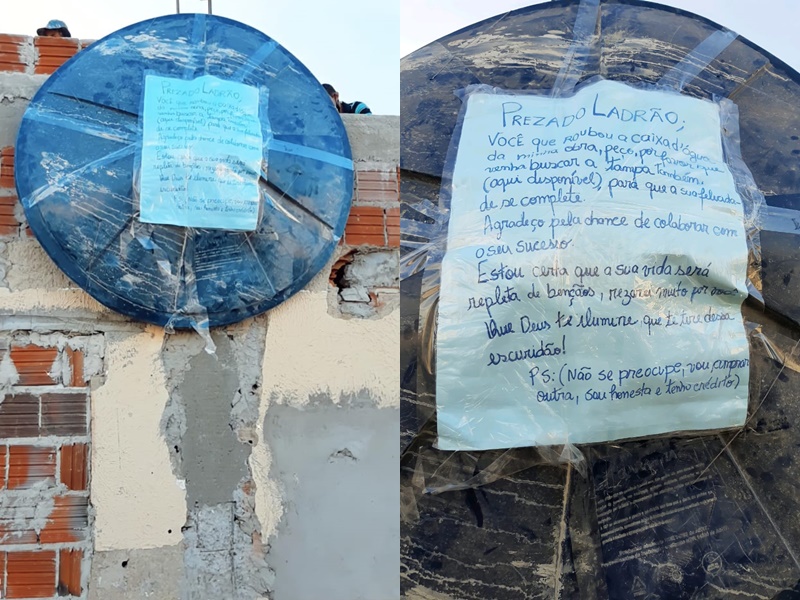 PREZADO LADRÃO;
VOCÊ QUE ROUBOU A CAIXA D'ÁGUA
DA MINHA OBRA, PEÇO, POR FAVOR, QUE
VENHA BUSCAR A TAMPA TAMBÉM,
(AQUI DISPONÍVEL) PARA QUE A SUA FELICIDA-
DE SE COMPLETE.
AGRADEÇO PELA CHANCE DE COLABORAR COM
O SEU SUCESSO.
ESTOU CERTA QUE A SUA VIDA SERÁ
REPLETA DE BENÇÃOS, REZAREI MUITO POR
QUE DEUS TE ILUMINE, QUE TE TIRE DESSA
ESCURIDÃO!
PS: (NÃO SE PREOCUPE, VOU COMPRAR
OUTRA, SOU HONESTA E TENHO CRÉDITO)